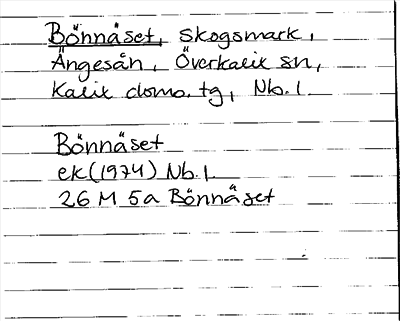 Bönnäset, skogsmark,
Ängesån, Överkalix sn,
Kalix doms. tg, Nb. l.
Bönnäset
ek (1974) Nb. l.
26 M 5a Bönnäset